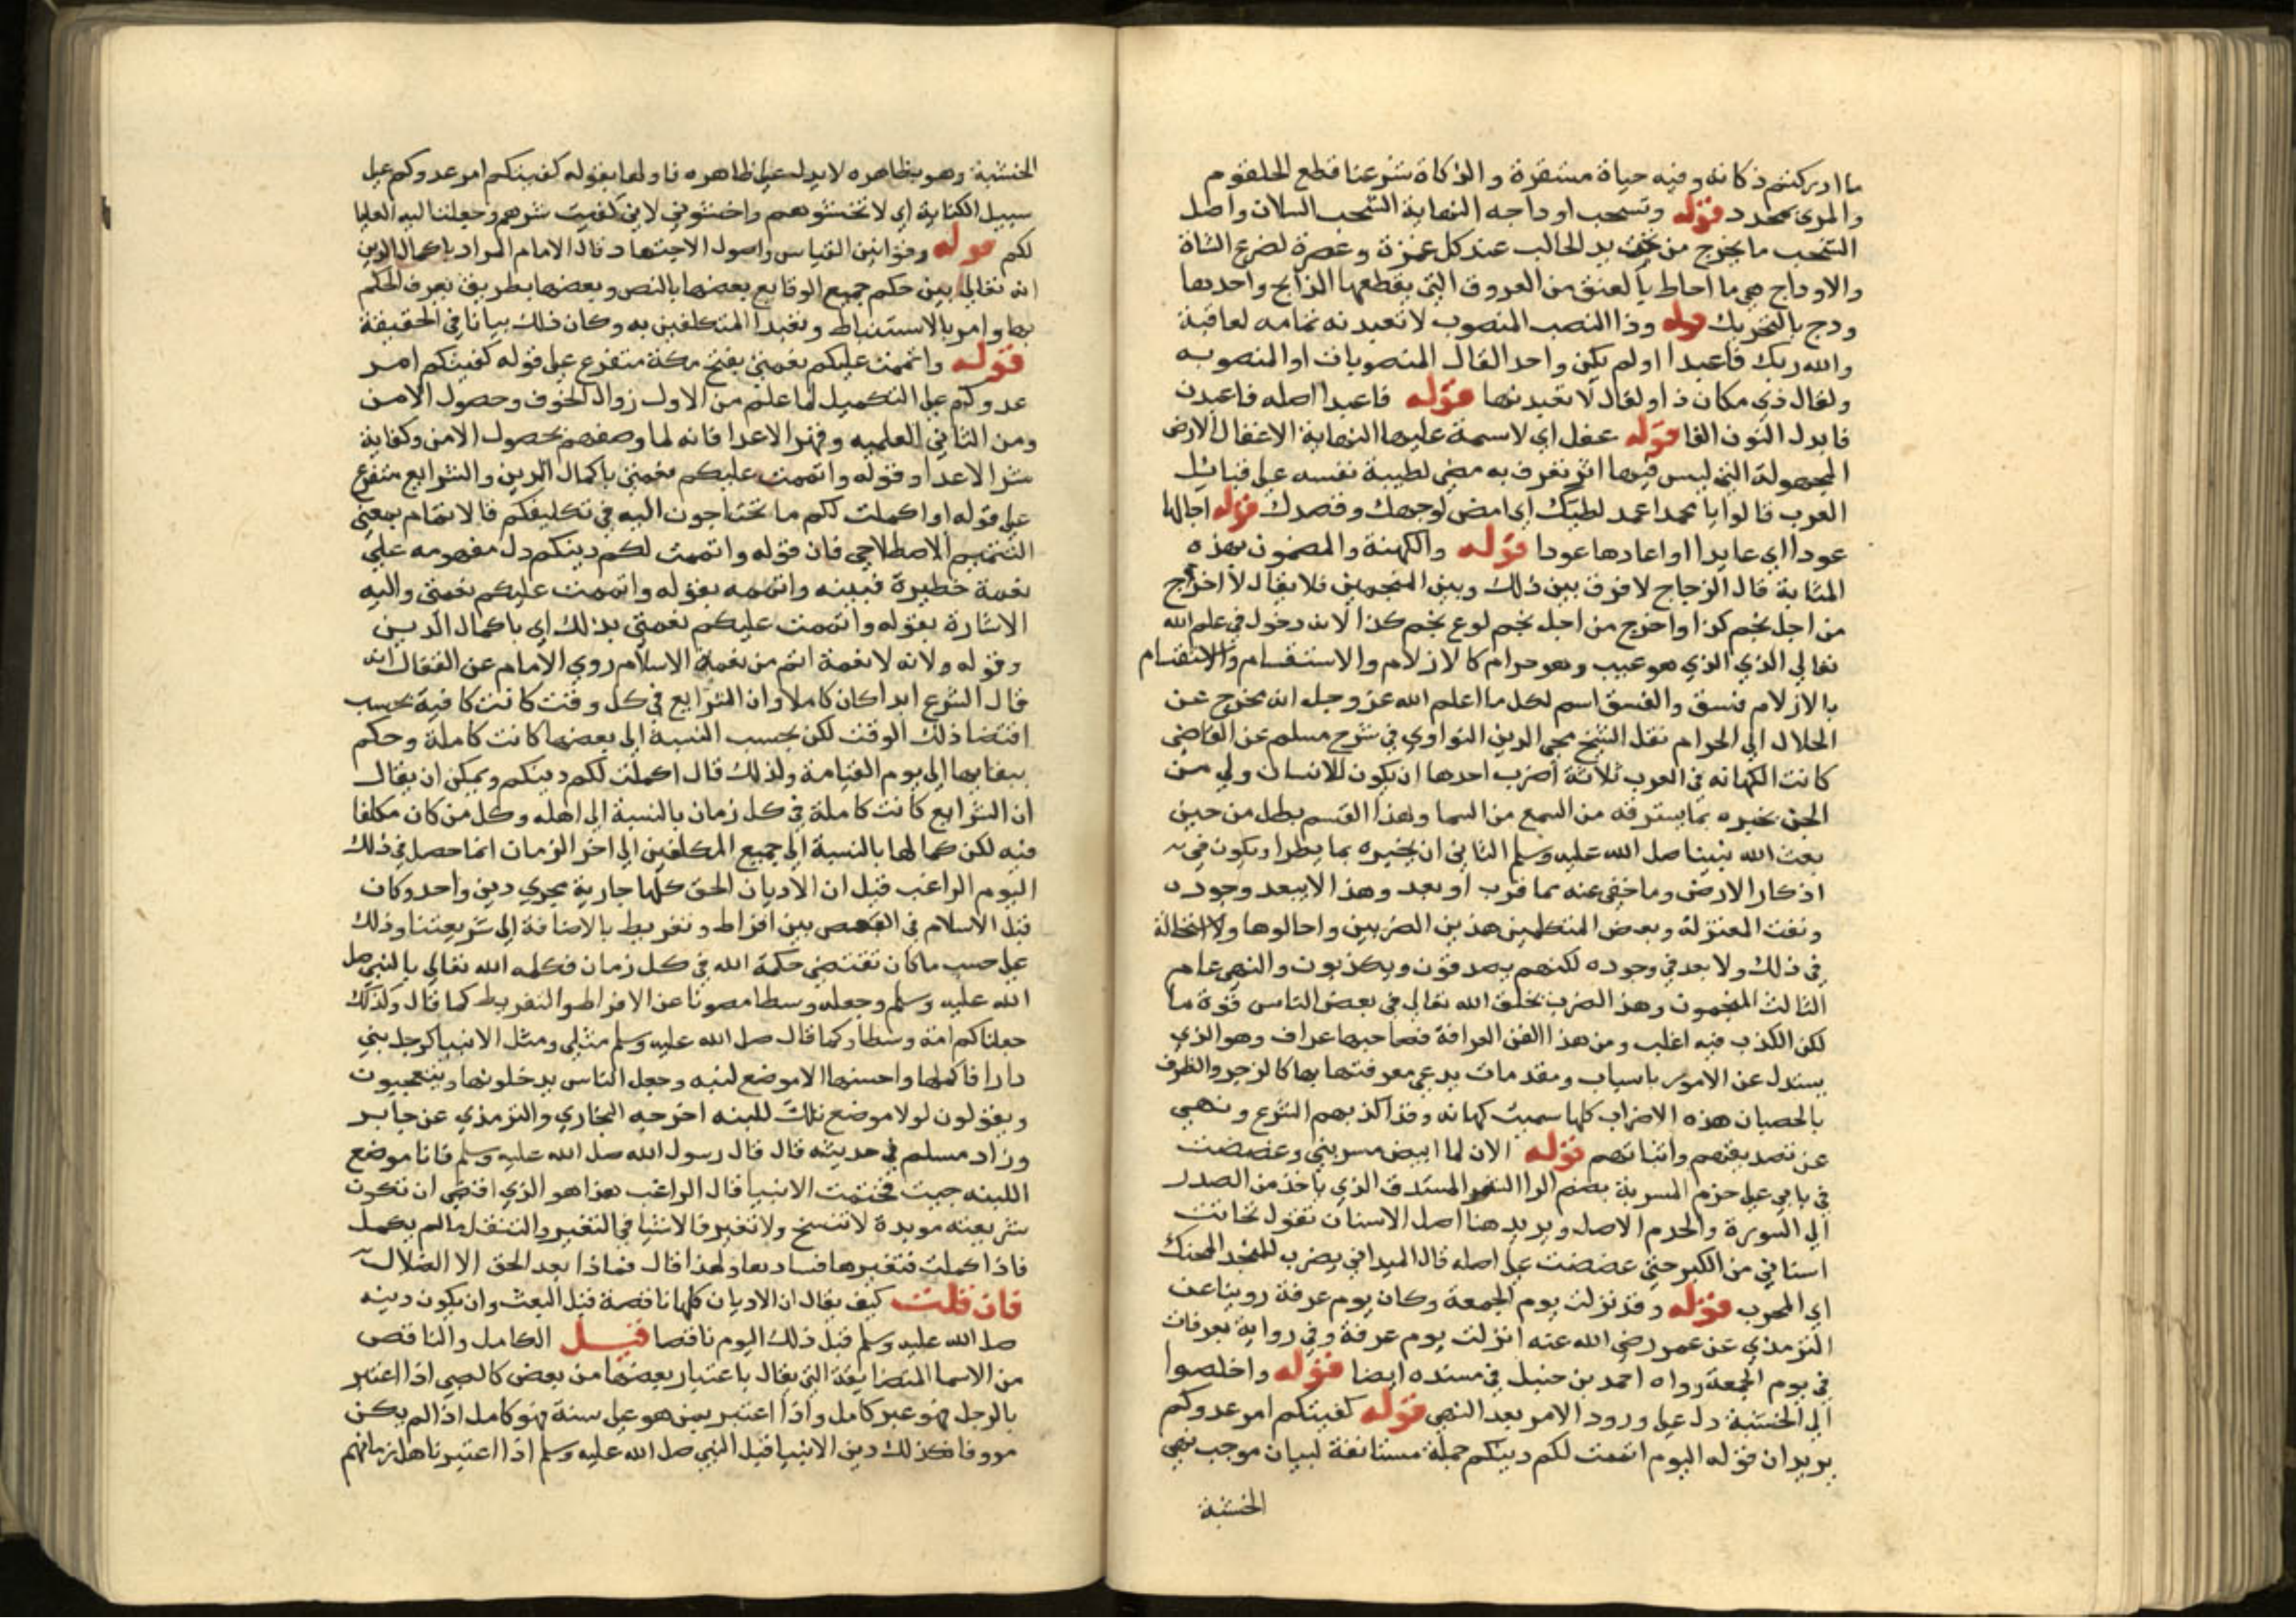 ما ادركتم ذكاته وفيه حياة مستقرة والذكاة شرعنا قطع الحلقوم
والمرى بمحدد قوله وتسحب اوداجه النهاية الشخب السلان واصل
الشخب ما يخرج من تحت يد الحالب عند كل غمزة وعصرة لضرع الشاة
والاوداج هي ما احاط بالعنق من العروق التي يقطعها الذابح واحدها
ودج بالتحريك قوله وذا النصب المنصوب لا تعبدنه لعاقبة
والله ربك فاعبدا او لم يكن واحد القال المنصوبات او المنصوبه
ولقال ذي مكان ذا او لقال لا تعبدنها قوله فاعبدا اصله فاعبدن
فابدل النون الفا قوله غفل اي لا سمة عليها النهاية الاغفال الارض
المجهولة التي ليس فيها اثر تعرف به مضى لطيبة نفسه على قبائل
العرب قالوا يا محمد اعمد لطيتك اى امض لوجهك وقصدك قوله اجالها
عودا اي عايدا او اعادها عودا قوله والكهنة والمنجمون بهذه
المثابة قال الزجاج لا فرق بين ذلك وبين المنجمين فلا يقال لا اخرج
من اجل نجم كذا واخرج من اجل نجم كذا لانه دخول في علم الله
تعالى الذي الذي هو غيب وهو حرام كالازلام والاستقسام والاستقسام
بالازلام فسق والفسق اسم لكل ما اعلم الله عز وجل انه مخرج عن
الحلال الى الحرام نقل الشيخ محي الدين النواوي في شرح مسلم عن القاضي
كانت الكهانه في العرب ثلاثة اضرب احدها ان يكون للانسان ولي من
الجن يخبره بما يسترقه من السمع من السما وهذا القسم بطل من حين
بعث الله نبينا صلى الله عليه وسلم الثاني ان يخبره بما يطرا ويكون في
اقطار الارض وما خفي عنه مما قرب او بعد وهذا لا يبعد وجوده
ونفت المعتزلة وبعض المتكلمين هذين الضربين واحالوها ولا استحالة
في ذلك ولا بعد في وجوده لكنهم يصدقون ويكذبون والنهي عام
الثالث المنجمون وهذا الضرب يخلق الله تعالى في بعض الناس قوة ما
لكن الكذب فيه اغلب ومن هذا الفن العرافة فصاحبها عراف وهو الذي
يستدل عن الامور باسباب ومقدمات يدعي معرفتها بها كالزجر والطرق
بالحصبان هذه الاضراب كلها سميت كهانه وقد اكذبهم الشرع ونهي
عن تصديقهم واتيانهم قوله الان لما ابيض مسربتي وعضضت
في نابي على جزم المسربة بضم الرا الشعر المستدق الذي ياخذ من الصدر
الى السورة والجذم الاصل ويريد هنا اصل الاسنان تقول تحاتت
اسناني من الكبر حتى عضضت على اصله قال الميداني يضرب للمنجذ المحنك
اي المجرب قوله وقد نزلت يوم الجمعة وكان يوم عرفة روينا عن
الترمذي عن عمر رضي الله عنه انزلت يوم عرفة وفي رواية بعرفات
في يوم الجمعة رواه احمد بن حنبل في مسنده ايضا قوله واخلصوا
الى الخشية دل على ورود الامر بعد النهي قوله كفيتكم امر عدوكم
يريد ان قوله اليوم اتممت لكم دينكم جملة مستانفة لبيان موجب نهي
الخشية
الخشية وهو بظاهره لا يدل على ظاهره فاولها بقوله كفيتكم امر عدوكم على
سبيل الكناية اي لا تخشوهم واخشوني لاني كفيت شرهم وجعلنا اليد العليا
لكم قوله وقوانين القياس واصول الاجتهاد قال الامام المراد باكمال الدين
انه تعالى بين حكم جميع الوقايع بعضها بالنص وبعضها بطريق يعرف الحكم
بها وامر بالاستنباط وتعبدا المتكلفين به وكان ذلك بيانا في الحقيقة
قوله واتممت عليكم نعمتي بفتح مكة متفرع على قوله كفيتكم امر
عدوكم على التكميل لما علم من الاول زوال الخوف وحصول الامن
ومن الثاني وقهر الاعدا فانه لما وصفهم بحصول الامن وكفاية
شر الاعدا وقوله واتممت عليكم نعمتي باكمال الدين والشرايع متفرع
على قوله او اكملت لكم ما تحتاجون اليه في تكليفكم فالاتمام بمعنى
التتميم الاصطلاحي فان قوله واتممت لكم دينكم دل مفهومه على
نعمة خطيرة فبينه واتممه بقوله واتممت عليكم نعمتي واليه
الاشارة بقوله واتممت عليكم نعمتي بذلك اي باكمال الدين
وقوله ولانه لا نعمة اتم من نعمة الاسلام روي الامام عن القفال انه
قال الشرع ابدا كان كاملا وان الشرايع في كل وقت كانت كافية بحسب
اقتضا ذلك الوقت لكن بحسب النسبة الى بعضها كانت كاملة وحكم
ببقايها الى يوم القيامة ولذلك قال اكملت لكم دينكم ويمكن ان يقال
ان الشرايع كانت كاملة في كل زمان بالنسبة الى اهله وكل من كان مكلفا
فيه لكن كمالها بالنسبة الى جميع المكلفين الى اخر الزمان انما حصل في ذلك
اليوم الراغب قيل ان الاديان الحق كلها جارية مجرى دين واحد وكان
قبل الاسلام في النقص بين افراط وتفريط بالاضافة الى شريعتنا وذلك
على حسب ما كان تقتضي حكمة الله في كل زمان فكمله الله تعالى بالنبي صلى
الله عليه وسلم وجعله وسطا مصونا عن الافراط والتفريط كما قال وكذلك
جعلناكم امة وسطا وكما قال صلى الله عليه وسلم مثلي ومثل الانبيا كرجل بني
دارا فاكملها واحسنها الا موضع لبنه وجعل الناس يدخلونها ويتعجبون
ويقولون لولا موضع تلك اللبنه اخرجه البخاري والترمذي عن جابر
وزاد مسلم في حديثه قال قال رسول الله صلى الله عليه وسلم فانا موضع
اللبنه جيت فختمت الانبيا قال الراغب هذا هو الذي اقتضى ان تكون
شريعته مويدة لا تنسخ ولا تغير فالاشيا في التغير والتنقل ما لم يكمل
فاذا كملت فتغيرها فسادها ولهذا قال فماذا بعد الحق الا الضلال
فان قلت كيف يقال ان الاديان كلها ناقصة قبل البعث وان يكون دينه
صلى الله عليه وسلم قبل ذلك اليوم ناقصا قيل الكامل والناقص
من الاسما المتضايقة التي يقال باعتبار بعضها من بعض كالصبي اذا اعتبر
بالرجل فهو غير كامل واذا اعتبر بمن هو على سنة فهو كامل اذا لم يكن
مووفا فكذلك دين الانبيا قبل النبي صلى الله عليه وسلم اذا اعتبرنا هل زمانهم